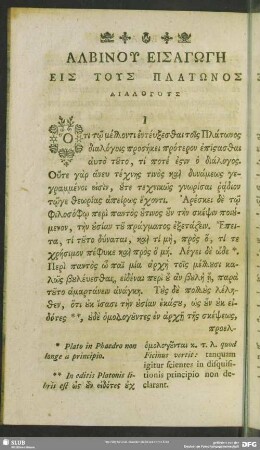 ΑΛΒΙΝΟΥ ΕΙΣΑΓΩΓΗ
ΕΙΣ ΤΟΥΣ ΠΛΑΤΩΝΟΣ
ΔΙΑΛΟΓΟΥΣ
I
Ὅτι τῷ μέλλοντι ἐντεύξεσθαι τοῖς Πλάτωνος
διαλόγοις προσήκει πρότερον ἐπίστασθαι
αὐτὸ τῦτο, τί ποτέ ἐστιν ὁ διάλογος.
Οὔτε γὰρ ἄνευ τέχνης τινὸς καὶ δυνάμεως γε-
γραμμένοι εἰσὶν, ὔτε τεχνικῶς γνωρίσαι ῥᾴδιον
τῷγε θεωρίας ἀπείρως ἔχοντι. Ἀρέσκει δὲ τῷ
Φιλοσόφῳ περὶ παντὸς ὅτινος ὖν τὴν σκέψιν ποιύ-
μενον, τὴν ὐσίαν τῦ πράγματος ἐξετάζειν. Ἔπει-
τα, τί τῦτο δύναται, καὶ τί μὴ, πρὸς ὅ, τί τε
χρήσιμον πέφυκε καὶ πρὸς ὃ μή. Λέγει δὲ ὧδε *.
Περὶ παντὸς ὦ παῖ μία ἀρχὴ τοῖς μέλλυσι κα-
λῶς βυλεύεσθαι, εἰδέναι περὶ ὗ ἂν βυλὴ ᾖ, παρὰ
τῦτο ἁμαρτάνειν ἀνάγκη. Τὺς δὲ πολλὺς λέλη-
θεν, ὅτι ὐκ ἴσασι τὴν ὐσίαν ἑκάστυ, ὡς ὖν ὐκ εἰ-
δότες **, ὐδὲ ὁμολογῦντες ἐν ἀρχῇ τῆς σκέψεως,
προελ-
* Plato in Phaedro non
longe a principio.
** In editis Platonis li-
bris est ὡς ὖν εἰδότες ὐχ
ὁμολογῦνται κ. τ. λ. quod
Ficinus vertit: tanquam
igitur scientes in disquisi-
tionis principio non de-
clarant.
SLUB
DFG